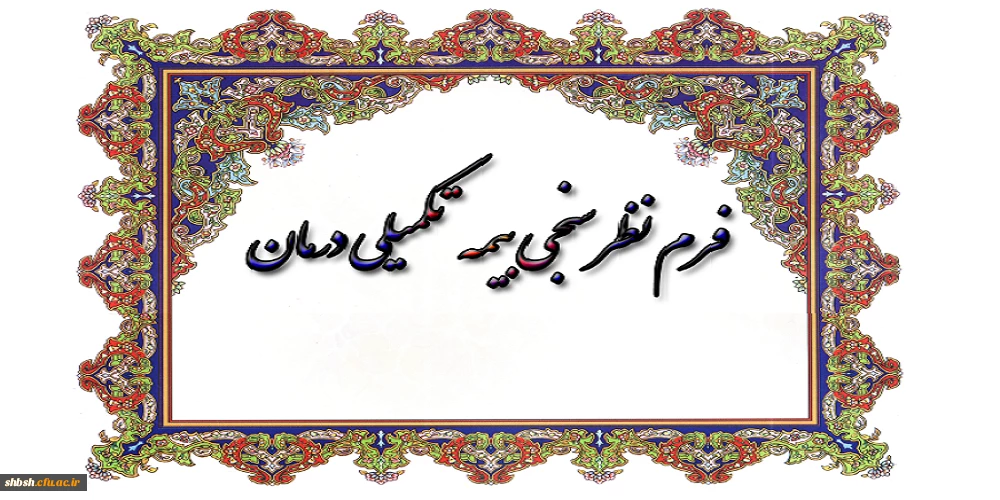 فرم نظر سنجی بیمه تکمیلی درمان
shbsh.cfu.ac.ir